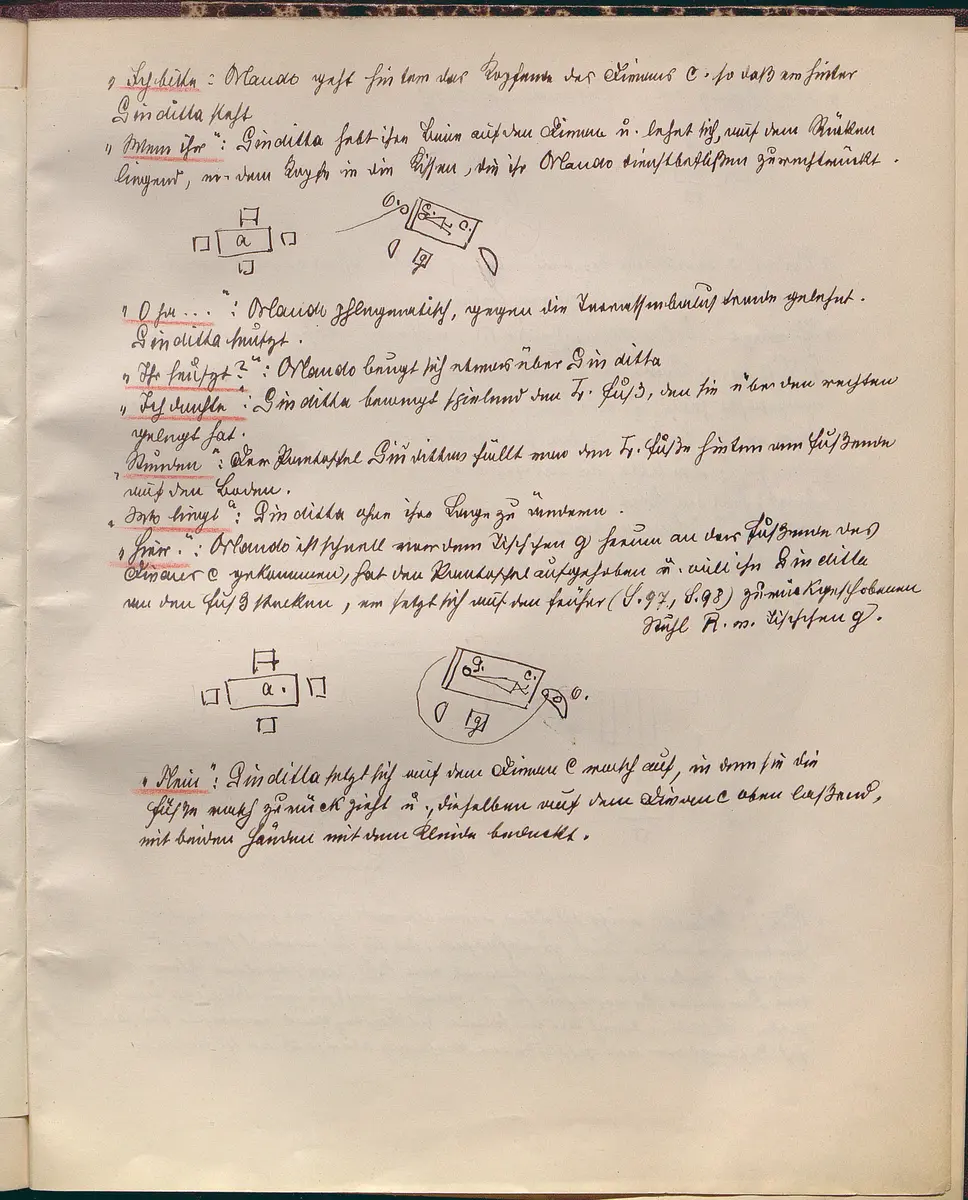 „Ich bitte: Orlando geht hinten das Kopfende des Divans C. so daß er hinter
Giuditta steht
„Wenn ihr": Giuditta hebt ihre Beine auf den Divan u. lehnt sich, auf dem Rücken
liegend, m. dem Kopfe in die Kissen, die ihr Orlando dienstbeflißen zurechtrückt.
O. G. C.
a
g
„O ja ...": Orlando phlegmatisch, gegen die Terrassenbalustrade gelehnt.
Giuditta seufzt.
„Ihr seufzt?": Orlando beugt sich etwas über Giuditta
„Ich dachte": Giuditta bewegt spielend den L. Fuß, den sie über den rechten
gelegt hat.
„Stunden": Der Pantoffel Giudittas fällt von dem L. Fuße hinten am Fußende
auf den Boden.
„Wo liegt": Giuditta ohne ihre Lage zu ändern.
„Hier.": Orlando ist schnell vor dem Tischchen g) herum an das Fußende des
Divans C gekommen, hat den Pantoffel aufgehoben u. will ihn Giuditta
an den Fuß stecken, er setzt sich auf den früher (S. 97, S. 98) zurückgeschobenen
Stuhl R. v. Tischchen g).
G. C. O.
a.
g
„Nein": Giuditta setzt sich auf dem Divan C rasch auf, in dem sie die
Füße rasch zurück zieht u., dieselben auf dem Divan C oben laßend,
mit beiden Händen mit dem Kleide bedeckt.